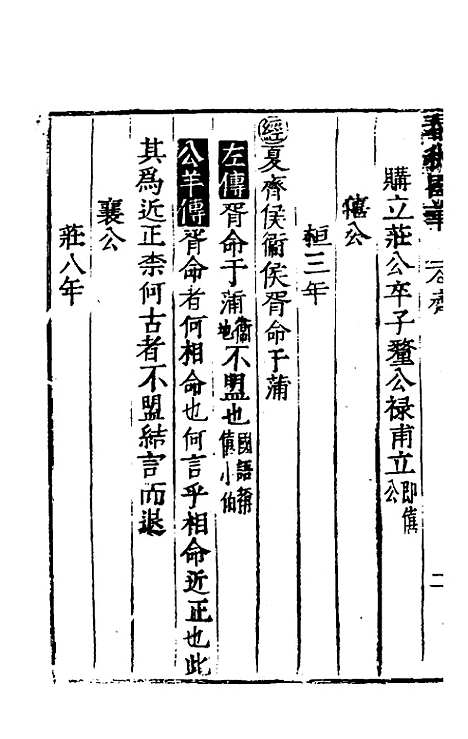 春秋國華 一 齊 二
購立莊公卒子釐公祿甫立即僖公
僖公
桓三年
經夏齊侯衞侯胥命于蒲
左傳胥命于蒲衞地不盟也國語稱僖小伯
公羊傳胥命者何相命也何言乎相命近正也此
其爲近正柰何古者不盟結言而退
襄公
莊八年